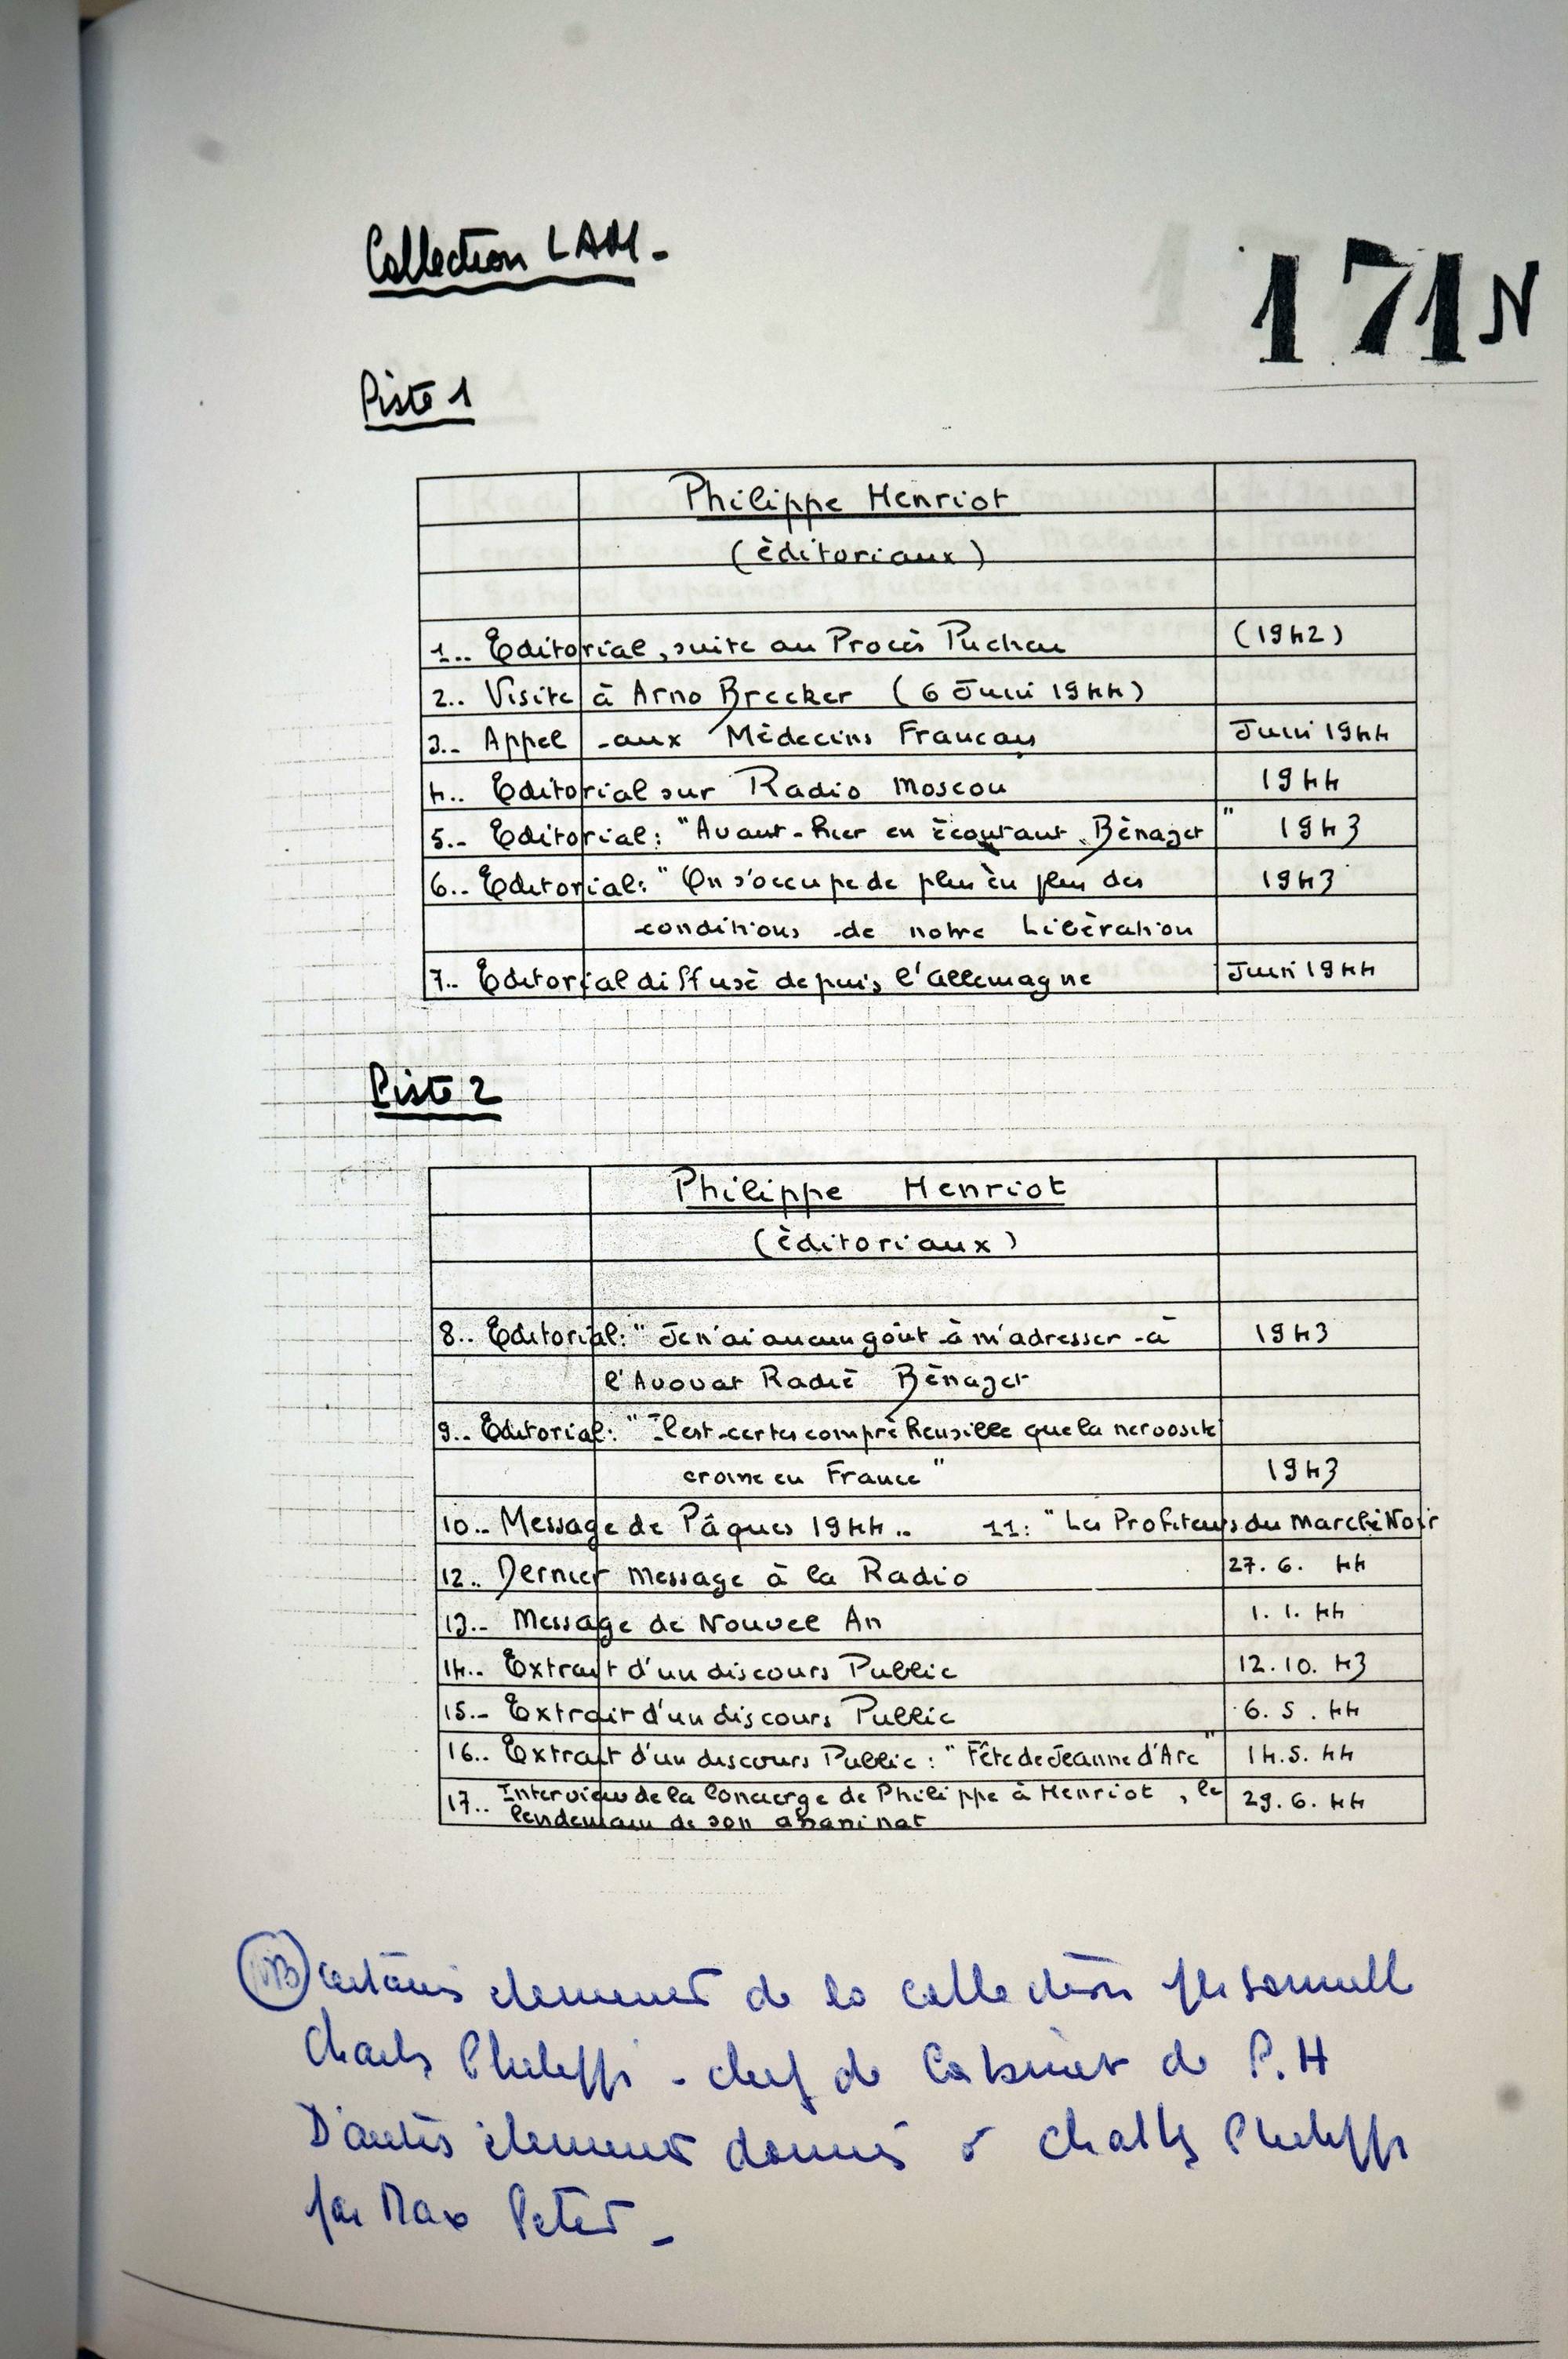 Collection LAM.
171 N
Piste 1
Philippe Henriot
(èditoriaux)
1.. Editorial, suite au Procès Pucheu (1942)
2.. Visite à Arno Brecker (6 Juin 1944)
3.. Appel aux Médecins Francais Juin 1944
4.. Editorial sur Radio Moscou 1944
5.- Editorial: "Avant-hier en écoutant Bènazet" 1943
6.. Editorial: "On s'occupe de plus en plus des 1943
conditions de notre Libèration
7.. Editorial diffusè depuis l'Allemagne Juin 1944
Piste 2
Philippe Henriot
(èditoriaux)
8.. Editorial: "Je n'ai aucun goût à m'adresser à 1943
l'Avouat Radiè Bènazet
9.. Editorial: "Il est certes comprèhensible que la nervosité
croisse en France" 1943
10.. Message de Pâques 1944.. 11: "Les Profiteurs du Marchè Noir
12.. Dernier message à la Radio 27.6. 44
13.- Message de Nouvel An 1.1.44
14.. Extrait d'un discours Public 12.10.43
15.- Extrait d'un discours Public 6.5.44
16.. Extrait d'un discours Public: "Fête de Jeanne d'Arc" 14.5.44
17.. Interview de la Concierge de Philippe à Henriot, le 29.6.44
lendemain de son assassinat
NB certains elements de la collection personnelle
Charles Philippi - chef de Cabinet de P.H
D'autres elements donnés à Charles Philippi
par Max Peter -